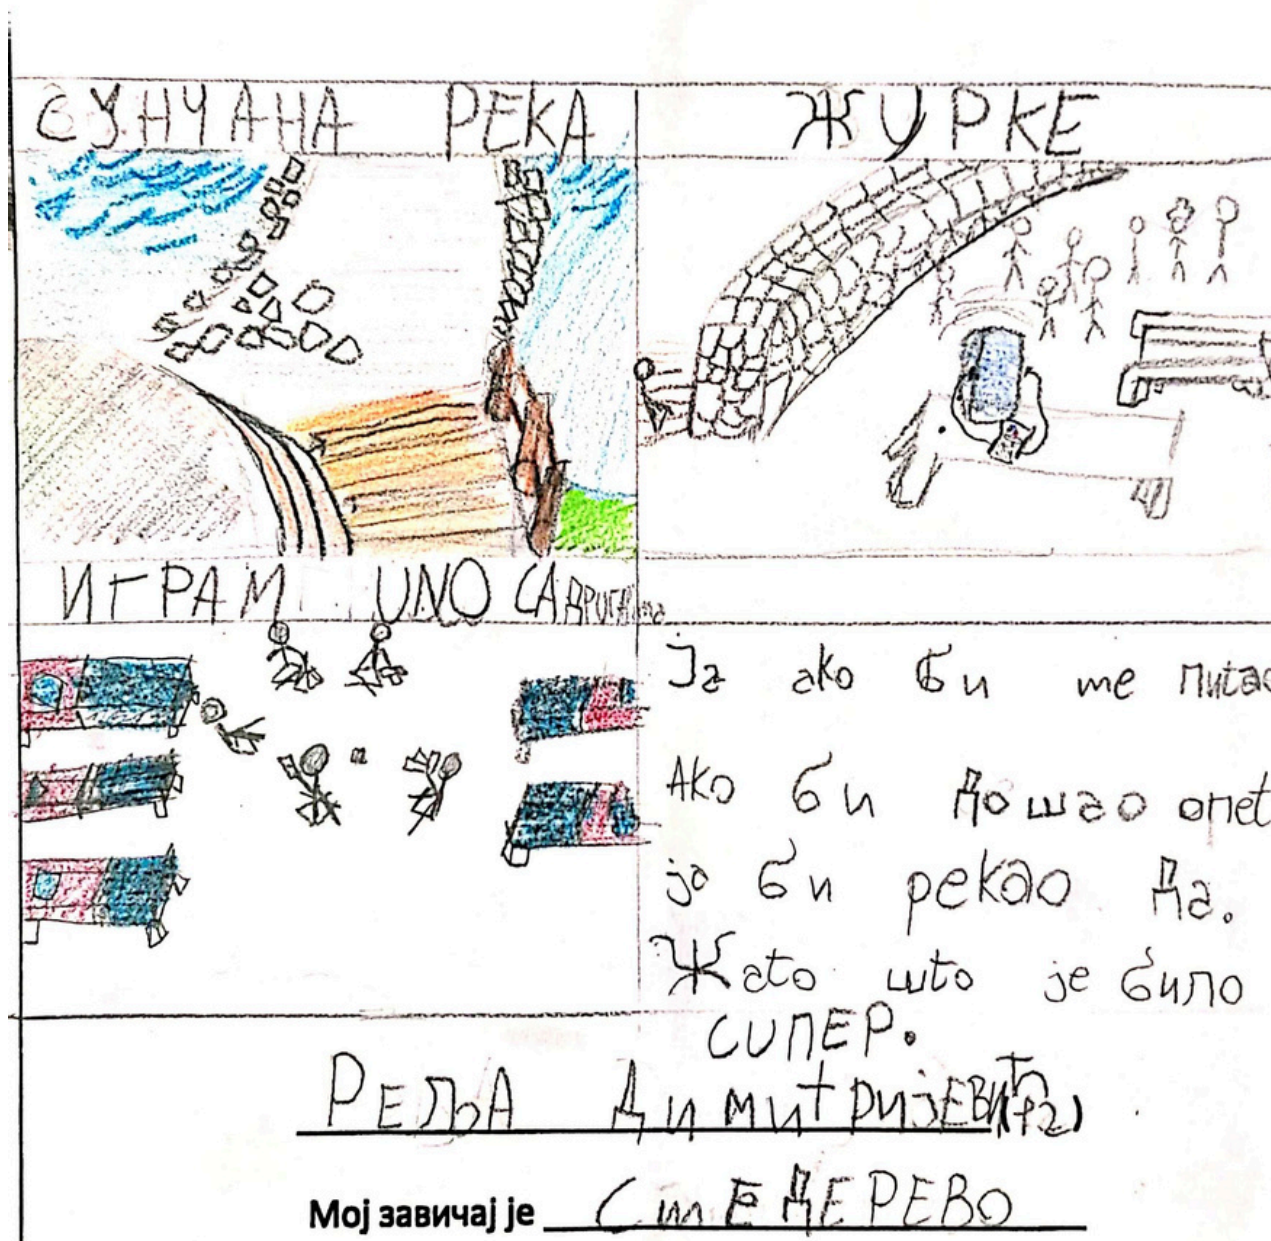 СУНЧАНА РЕКА
ЖУРКЕ
ИГРАМ UNO СА ДРУГАРИМА
Ја ако би ме питао
Ако би дошао опет
ја би рекао да.
Жато што је било
СУПЕР.
РЕЉА ДИМИТРИЈЕВИЋ
Мој завичај је СмЕДЕРЕВО